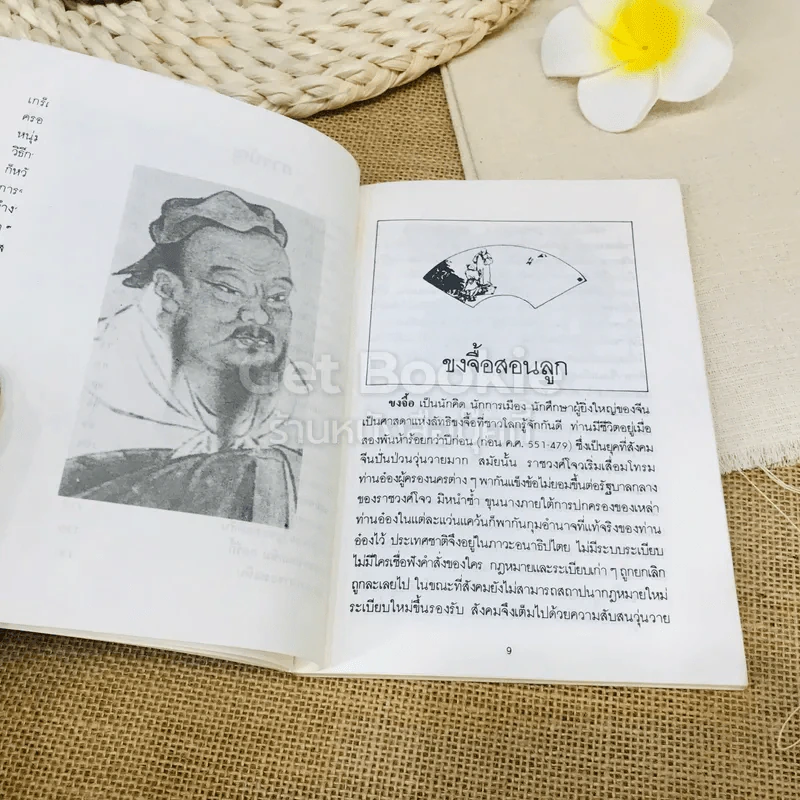 เกรี
ครอ
หนุ่ม
วิธีก
กีหวั
การ
Get Bookie
ขงจื้อสอนลูก
ขงจื้อ เป็นนักคิด นักการเมือง นักศึกษาผู้ยิ่งใหญ่ของจีน
เป็นศาสดาแห่งลัทธิขงจื้อที่ชาวโลกรู้จักกันดี ท่านมีชีวิตอยู่เมื่อ
สองพันห้าร้อยกว่าปีก่อน (ก่อน ค.ศ. 551-479) ซึ่งเป็นยุคที่สังคม
จีนปั่นป่วนวุ่นวายมาก สมัยนั้น ราชวงศ์โจวเริ่มเสื่อมโทรม
ท่านอ๋องผู้ครองนครต่าง ๆ พากันแข็งข้อไม่ยอมขึ้นต่อรัฐบาลกลาง
ของราชวงศ์โจว มิหนำซ้ำ ขุนนางภายใต้การปกครองของเหล่า
ท่านอ๋องในแต่ละแว่นแคว้นก็พากันกุมอำนาจที่แท้จริงของท่าน
อ๋องไว้ ประเทศชาติจึงอยู่ในภาวะอนาธิปไตย ไม่มีระบบระเบียบ
ไม่มีใครเชื่อฟังคำสั่งของใคร กฎหมายและระเบียบเก่า ๆ ถูกยกเลิก
ถูกละเลยไป ในขณะที่สังคมยังไม่สามารถสถาปนากฎหมายใหม่
ระเบียบใหม่ขึ้นรองรับ สังคมจึงเต็มไปด้วยความสับสนวุ่นวาย
9